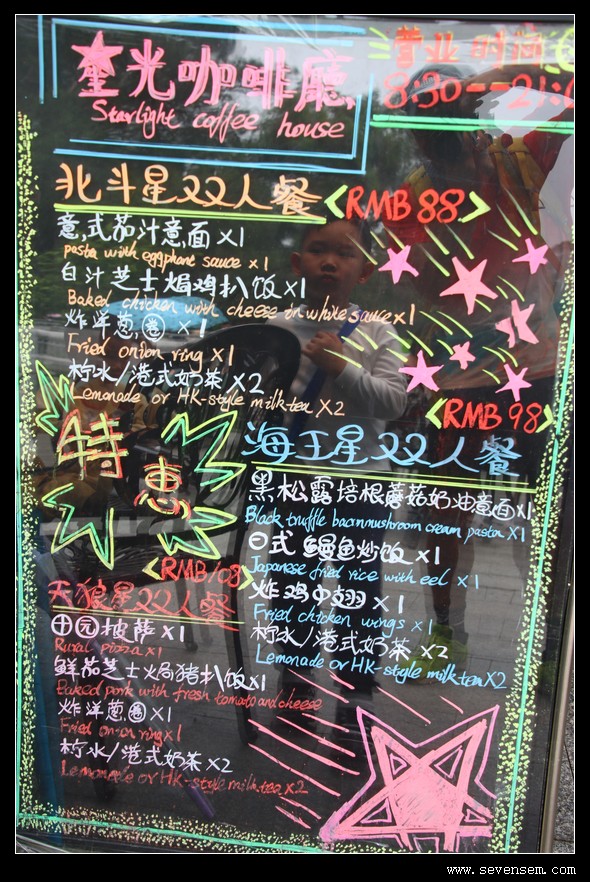 星光咖啡廳
Starlight coffee house
营业时间
8:30--21:0
北斗星双人餐 <RMB 88>
意式茄汁意面 X1
pasta with eggplant sauce x1
白汁芝士焗鸡扒饭 X1
Baked chicken with cheese in white sauce x1
炸洋葱圈 X1
Fried onion ring X1
柠水/港式奶茶 X2
Lemonade or HK-style milk tea X2
特惠
<RMB 98>
海王星双人餐
黑松露培根蘑菇奶油意面 x1
Black truffle baconmushroom cream pasta x1
日式鳗鱼炒饭 X1
Japanese fried rice with eel x1
炸鸡中翅 X1
Fried chicken wings x1
柠水/港式奶茶 X2
Lemonade or HK-style milk tea X2
<RMB 108>
天狼星双人餐
田园披萨 X1
Rural pizza x1
鲜茄芝士焗猪扒饭 X1
Baked pork with fresh tomato and cheese
炸洋葱圈 X1
Fried onion ring x1
柠水/港式奶茶 X2
Lemonade or HK-style milk tea X2
www.sevensem.com